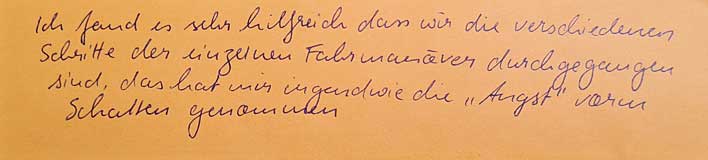 Ich fand es sehr hilfreich dass wir die verschiedenen
Schritte der einzelnen Fahrmanöver durchgegangen
sind, das hat mir irgendwie die „Angst" vorm
Schalten genommen